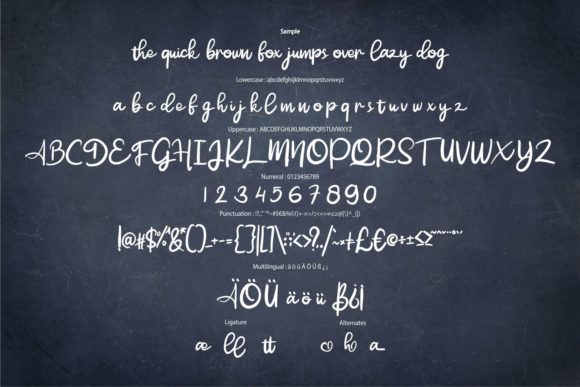 Sample
the quick brown fox jumps over lazy dog
Lowercase : abcdefghijklmnopqrstuvwxyz
a b c d e f g h i j k l m n o p q r s t u v w x y z
Uppercase : ABCDEFGHIJKLMNOPQRSTUVWXYZ
ABCDEFGHIJKLMNOPQRSTUVWXYZ
Numeral : 0123456789
1 2 3 4 5 6 7 8 9 0
!@#$%^&*()_+-={}[]|\:;'<>?,./~
Multilingual : ä ö ü Ä Ö Ü ß ¡ ¿
ÄÖÜ ä ö ü ß¿¡
Ligature Alternates
æ ll tt o h a